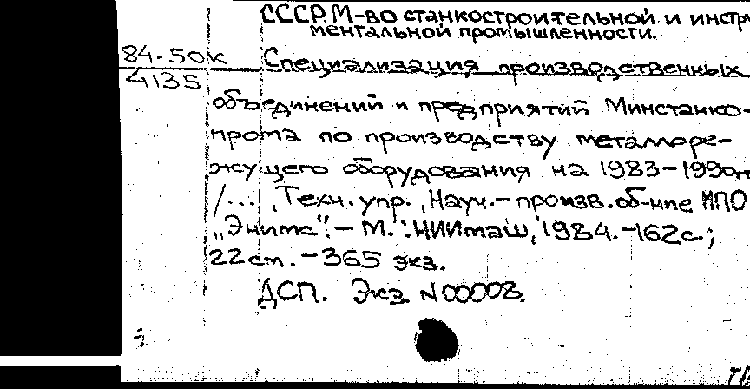 СССР. М-во станкостроительной и инстр
ментальной промышленности.
84-50к
4135
Специализация производственных
объединений и предприятий Минстанко-
прома по производству металлоре-
жущего оборудования на 1983-1990гг
/... , Техн. упр., Науч.-произв. об-ние НПО
„Энимс". - М. : НИИмаш, 1984. -162с.;
22см. - 365 экз.
ДСП. Экз N00008.